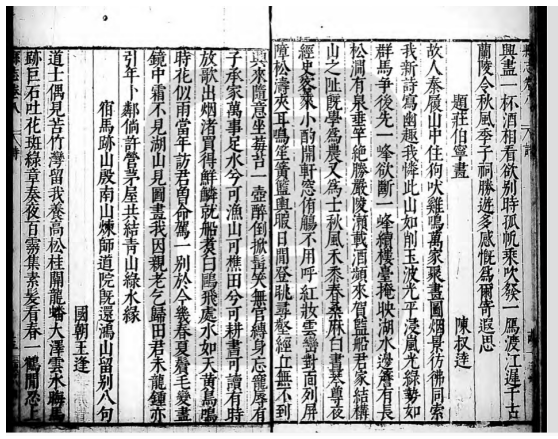 興盡一杯酒相看欲別時孤帆乘吹發一馬渡江遲千古
蘭陵令秋風季子祠勝遊多感慨為爾奇遐思
題莊伯寧畫 陳叔逵
故人秦履山中住狗吠雞鳴萬家聚畫圖烟景彷彿同索
我新詩寫幽趣我憐此山如削玉波光平浸嵐光綠勢如
群馬爭後先一峰欲斷一峰續樓臺掩映湖水邊舊有長
松澗有泉垂竿絕勝嚴陵瀨載酒頻來賀監船君家結構
山之阯既學為農又為士秋風禾黍春桑麻白晝琴尊夜
經史客來小酌開軒窓侑觴不用呼紅妝雲巒對面列屏
障松濤夾耳鳴笙簧籃輿暇日閒登眺尋壑經丘無不到
興來隨意坐莓苔一壺醉倒掀髯笑無官縛身忘寵辱有
子承家萬事足水兮可漁山可樵田兮可耕書可讀有時
放歌出烟渚買得鮮鱗就船煑白鷗飛處水如天黃鳥鳴
時花似雨當年訪君曾命駕一別於今幾春夏鬢毛變盡
鏡中霜不見湖山見圖畫我因親老乞歸田君未龍鍾亦
引年卜鄰倘許營茅屋共結青山綠水緣
宿馬跡山殷南山煉師道院既還鴻山留別八句
國朝王逢
道士偶見苦竹灣留我養高松桂開龍蟠大澤雲水晦馬
跡巨石吐花斑綠章奏夜百霧集素髮有春一鶴閒忍上